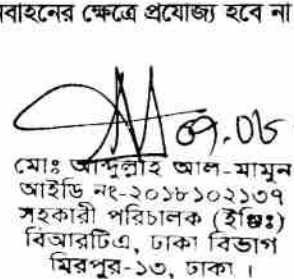 নবাহনের ক্ষেত্রে প্রযোজ্য হবে না
০৭.০৮
মোঃ আব্দুল্লাহ আল-মামুন
আইডি নং-২০১৮১০২১৩৭
সহকারী পরিচালক (ইঞ্জিঃ)
বিআরটিএ, ঢাকা বিভাগ
মিরপুর-১৩, ঢাকা ।